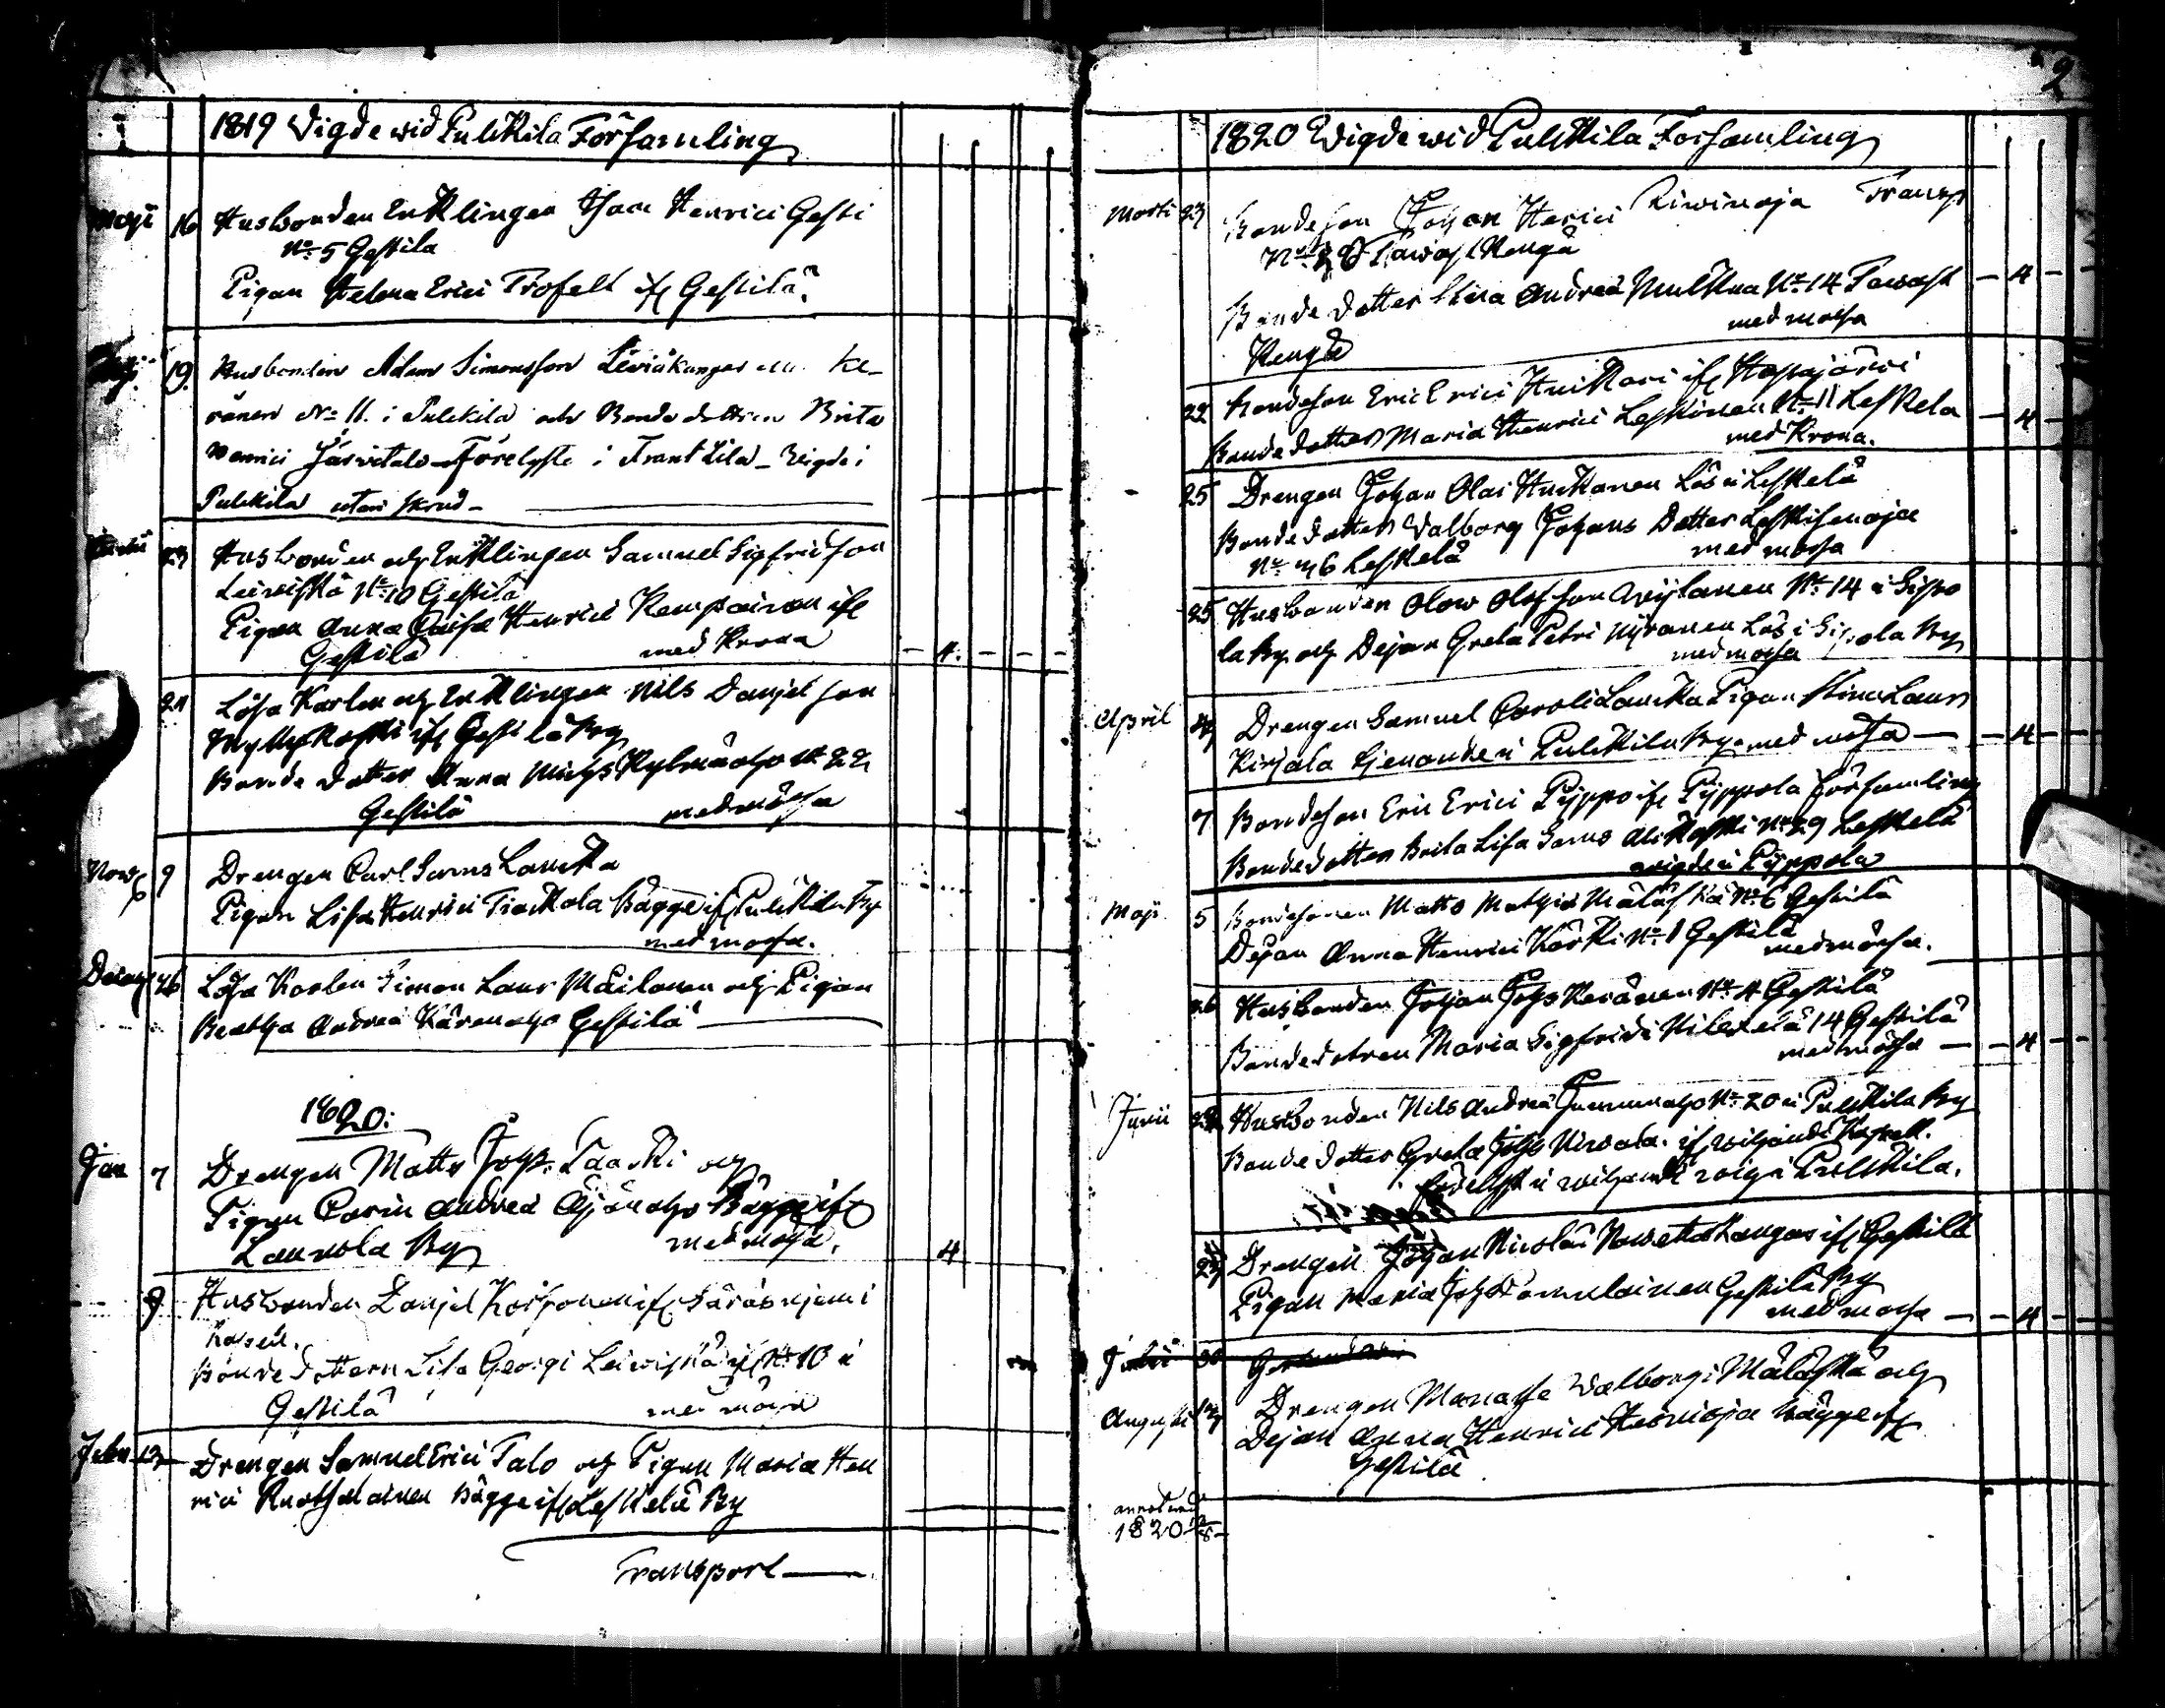 1819 Vigde wid Pulkkila Församling
Maji 16 Husbonden Enklingen Isaac Henrici Gesti
No 5 Gestila
Pigan Helena Erici Trofelt if Gestilä.
19. Husbonden Adam Simonsson Leviäkangas Ke-
ränen No 11. i Pulkila och Bonde dottren Brita
Henrici Järvitalo Förelyste i Frantzila Vigde i
Pulkila utan skrud
23 Husbonden och Enklingen Samuel Sigfridson
Leiviskä No 10 Gestilä
Pigan Anna Caisa Henrici Kemppainen if
Gestilä med Krona 4.
Lösa Karlen och Enklingen Nils Danjelson
Myllykoski if Gestilä By
Bonde dotter Anna Michs Kylmäaho No 22
Gestilä med mössa
Nov 9 Drengen Carl Sams Laucka
Pigan Lisa Henrici Bägge if Pulkkila By
med mossa.
26 Lösa Karlen Simon Laur Mailanen och Pigan
Beatha Andrea Kärenaho Gestilä
1820.
Jan 7 Drengen Matts Johs. och
Pigan Carin Andrea Äijänaho Bägge if
Laumola By med mossa. 4
9 Husbonden Danjel Korhonen if Säräsnjemi
Kapell.
Bonde dottern Lisa Georgi Leiviskä if No 10 i
Gestilä med
Drengen Samuel Erici Talo och Pigan Maria Hen
rici Bägge if Leskelä By
Transport
2
1820 Vigde wid Pulkkila Församling
Marti 23 Bondeson Johan Henrici Riwinoja Transp
Tawast Kengä
Bonde dotter Stina Andreä Mulkua No 14 Tawast 4
med mossa
Kengä
22 Bondeson Eric Erici Huikari if Haapajärvi
Bonde dotter Maria Henrici Leskinen No 11 Leskela 4
med Krona.
25 Drengen Johan Olai Huckanen Lös i Leskelä
Bonde dotter Valborg Johans Dotter Leskisenoja
Leskelä med mossa
25 Husbonden Olow Olofson No 14 i Sippo
la By och Dejan Greta Petri Lös i Sippola By
med mossa
April Drengen Samuel Caroli Laucka Pigan Stina Laurs
Kirjala tjenande i Pulkkila By. med mössa 4
7 Bondeson Eric Erici Pyppo if Pyppola Församling
Bondedotter Brita Lisa Sams Alikoski No 29 Leskelä
wigde i Pyppola
Maji 5 Bondesonen Matts Mathiä Mäläskä No 6 Gestilä
Dejan Anna Henrici Kärki No 1 Gestilä
med mössa.
26 Husbonden Johan Johs Keränen No 4 Gestilä
Bondedotren Maria Sigfridi 14 Gestilä
med mössa 4
Junii Husbonden Nils Andreä No 20 i Pulkkila By
Bonde dotter Greta Johs if Wihandi Kapell.
förelyst i Wihandi wigd i Pulkkila.
Drengen Johan Nicolai if Gestilä
Pigan Maria Johs Gestilä By
med mossa 4
Julii 30
Augusti Drengen Manasse Walborgi Mäläskä och
Dejan Anna Henrici Bägge if
Gestilä
1820